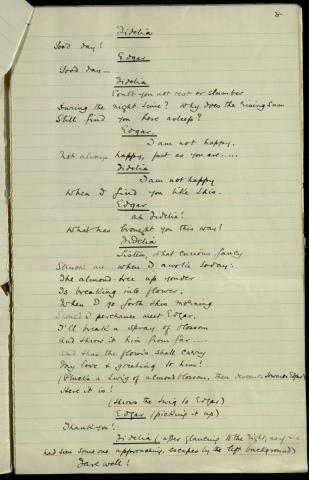 8
Fidelia
Good day!
Edgar
Good day —
Fidelia
Could you not rest or slumber
During the night time? Why does the rising sun
Still find you here asleep?
Edgar
I am not happy.
Not always happy, just as you are.....
Fidelia
I am not happy
When I find you like this.
Edgar
Ah Fidelia!
What has brought you this way?
Fidelia
Listen, what curious fancy
Struck me when I awoke today.
The almond-tree up yonder
Is breaking into flower;
When I go forth this morning
Should I perchance meet Edgar,
I'll break a spray of blossom
And throw it him from far....
And thus the flowers shall carry
My love & greeting to him!
(Plucks a twig of almond blossom, then towards Edgar)
Here it is!
(throws the twig to Edgar)
Edgar (picking it up)
Thank you!
Fidelia (after glancing to the right, as if she
had seen some one approaching, escapes by the left background)
Farewell!